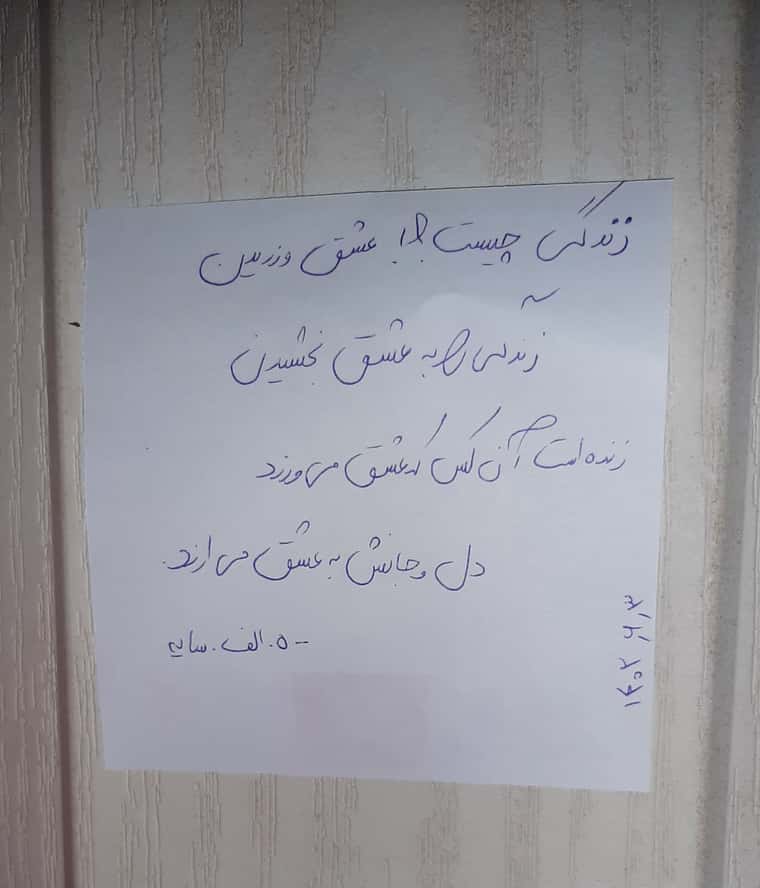 زندگی چیست؟! عشق ورزیدن
زندگی را به عشق بخشیدن
زنده است آن کس که عشق می‌ورزد
دل و جانش به عشق می‌ارزد.
- ه. الف. سایه
۱۴۰۲/۶/۳